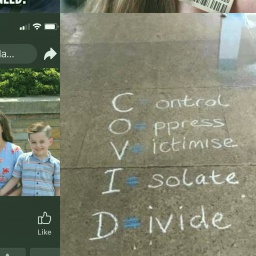 la...
Like
C = ontrol
O = ppress
V = ictimise
I = solate
D = ivide